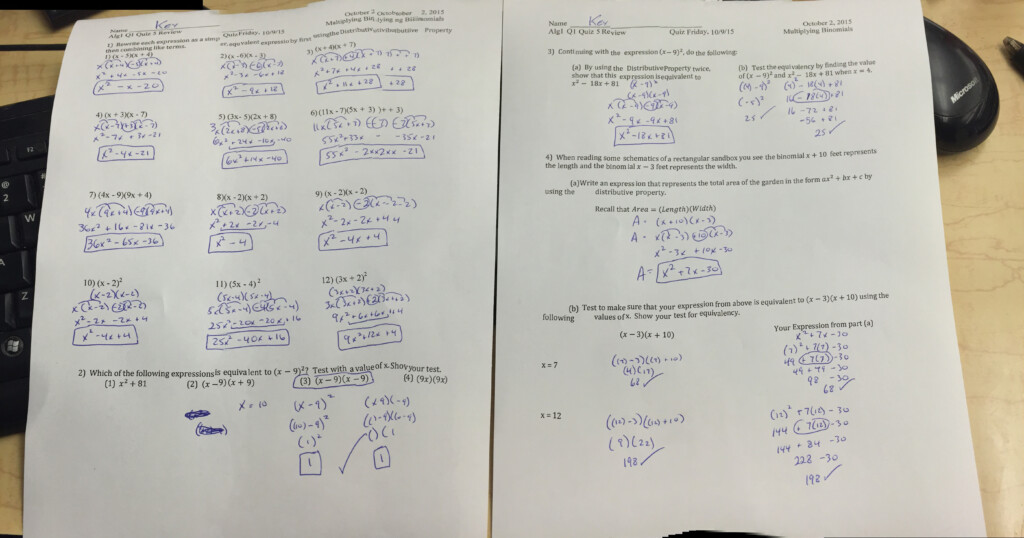 Name Key
October 2, 2015
Alg1 Q1 Quiz 5 Review
Quiz Friday, 10/9/15
Multiplying Binomials
1) Rewrite each expression as a
equivalent expression by first using the Distributive Property
then combining like terms.
1) (x - 5)(x + 4)
2) (x - 6)(x - 3)
3) (x + 4)(x + 7)
x² + 4x - 5x - 20
x² - 3x - 6x + 18
x² + 7x + 4x + 28
x² - x - 20
x² - 9x + 18
x² + 11x + 28
4) (x + 3)(x - 7)
5) (3x - 5)(2x + 8)
6) (11x - 7)(5x + 3)
x(x-7)+3(x-7)
x² - 7x + 3x - 21
6x² + 24x - 10x - 40
x² - 4x - 21
6x² + 14x - 40
7) (4x - 9)(9x + 4)
8)(x - 2)(x + 2)
9) (x - 2)(x - 2)
4x(9x+4)-9(9x+4)
x(x+2)-2(x+2)
36x² + 16x - 81x - 36
x² + 2x - 2x - 4
x² - 2x - 2x + 4
36x² - 65x - 36
x² - 4
x² - 4x + 4
10) (x - 2)²
11) (5x - 4)²
12) (3x + 2)²
(x-2)(x-2)
(5x-4)(5x-4)
(3x+2)(3x+2)
x(x-2)-2(x-2)
5x(5x-4)-4(5x-4)
3x(3x+2)+2(3x+2)
x² - 2x - 2x + 4
25x² - 20x - 20x + 16
9x² + 6x + 6x + 4
x² - 4x + 4
25x² - 40x + 16
9x² + 12x + 4
2) Which of the following expressions is equivalent to (x − 9)²? Test with a value of x. Show your test.
(1) x² + 81
(2) (x − 9)(x + 9)
(3) (x − 9)(x − 9)
(4) (9x)(9x)
x = 10
(x-9)²
(x-9)(x-9)
(10-9)²
(10-9)(10-9)
(1)²
(1)(1
1
1
Name Key
October 2, 2015
Alg1 Q1 Quiz 5 Review
Quiz Friday, 10/9/15
Multiplying Binomials
3) Continuing with the expression (x − 9)², do the following:
(a) By using the Distributive Property twice,
show that this expression is equivalent to
x² − 18x + 81
(x-9)²
(x-9)(x-9)
x(x-9)-9(x-9)
x² - 9x - 9x + 81
x² - 18x + 81
(b) Test the equivalency by finding the value
of (x − 9)² and x² − 18x + 81 when x = 4.
(4-9)²
(4)² - 18(4) + 81
(-5)²
16 - 18(4) + 81
25 ✓
16 - 72 + 81
-56 + 81
25 ✓
4) When reading some schematics of a rectangular sandbox you see the binomial x + 10 feet represents
the length and the binomial x − 3 feet represents the width.
(a)Write an expression that represents the total area of the garden in the form ax² + bx + c by
using the distributive property.
Recall that Area = (Length)(Width)
A = (x+10)(x-3)
A = x(x-3)+10(x-3)
x² - 3x + 10x - 30
A = x² + 7x - 30
(b) Test to make sure that your expression from above is equivalent to (x − 3)(x + 10) using the
following values of x. Show your test for equivalency.
(x − 3)(x + 10)
Your Expression from part (a)
x² + 7x - 30
x = 7
((7)-3)((7)+10)
(7)² + 7(7) - 30
(4)(17)
49 + 7(7) - 30
68 ✓
49 + 49 - 30
98 - 30
68 ✓
x = 12
((12)-3)((12)+10)
(12)² + 7(12) - 30
(9)(22)
144 + 7(12) - 30
198 ✓
144 + 84 - 30
228 - 30
198 ✓
Microsoft